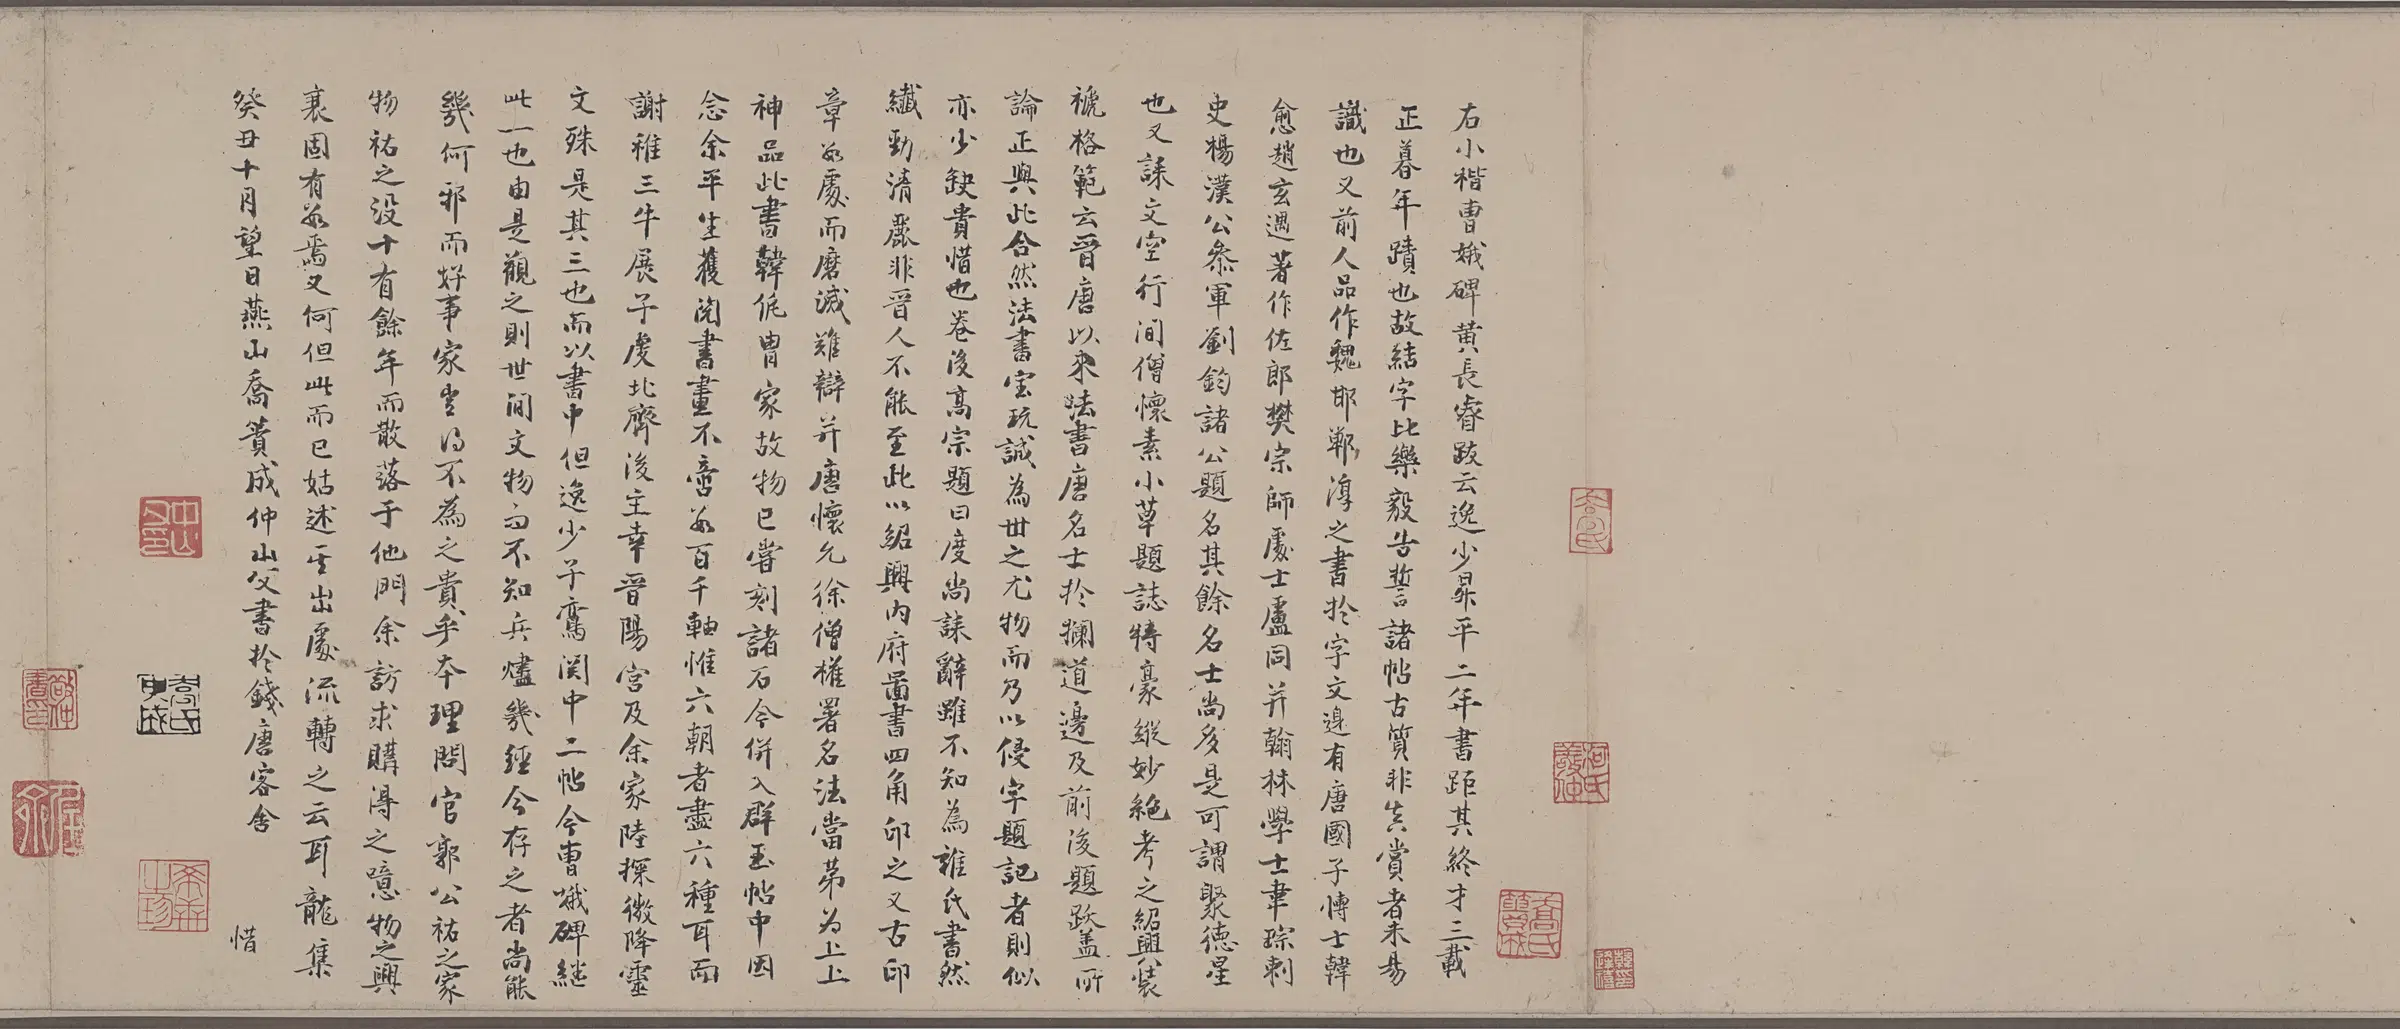 右小楷曹娥碑黄長睿跋云逸少昇平二年書距其終才三載
正暮年蹟也故結字比樂毅告誓諸帖古質非真賞者未易
識也又前人品作魏邯鄲淳之書於字文邊有唐國子博士韓
愈趙玄遇著作佐郎樊宗師處士盧同并翰林學士韋琮刺
史楊漢公叅軍劉鈞諸公題名其餘名士尚多是可謂聚德星
也又誄文空行間僧懷素小草題誌特豪縱妙絶考之紹興裝
褫格範云晉唐以來法書唐名士於攔道邊及前後題跋盖所
論正與此合然法書寶玩誠為世之尤物而乃以侵字題記者則似
亦少缺貴惜也卷後髙宗題曰度尚誄辭雖不知為誰氏書然
纖勁清麗非晉人不能至此以紹興内府圖書四角印之又古印
章數處而磨滅難辯并唐懷允徐僧權署名法當第为上上
神品此書韓侂胄家故物已嘗刻諸石今併入群玉帖中因
念余平生獲閲書畫不啻數百千軸惟六朝者盡六種耳而
謝稚三牛展子虔北齊後主幸晉陽宮及余家陸探微降靈
文殊是其三也而以書中但逸少子鸞関中二帖今曹娥碑継
此一也由是觀之則世間文物而不知兵燼幾經今存之者尚能
幾何邪而好事家豈得不為之貴乎本理問官郭公祐之家
物祐之没十有餘年而散落于他門余訪求購得之噫物之興
衰固有數焉又何但此而已姑述其出處流轉之云耳龍集
癸丑十月望日燕山喬簣成仲山父書於錢唐客舍
惜
喬氏
喬氏簣成